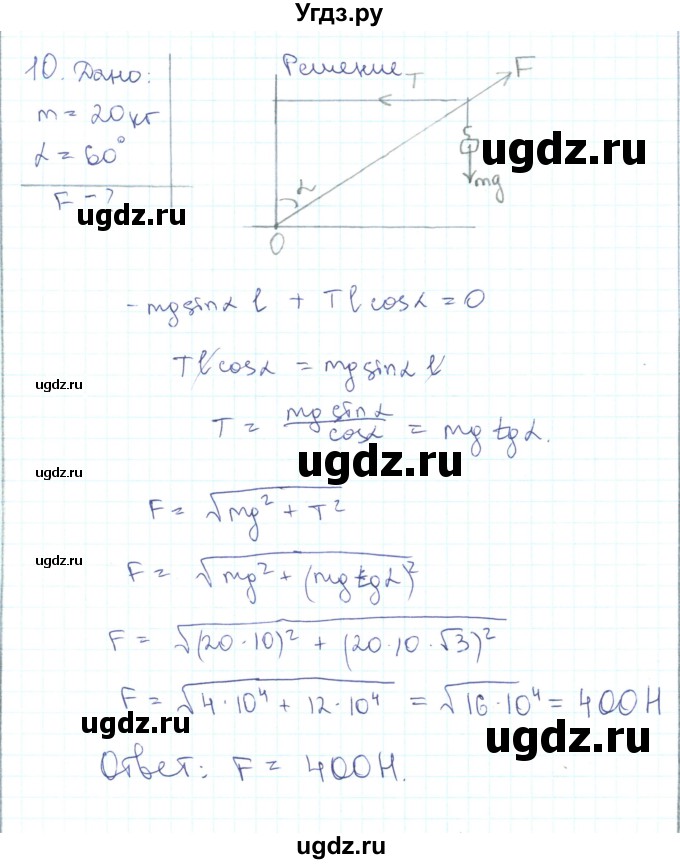 Угдз.ру
10. Дано:
m = 20 кг
α = 60°
F - ?
Решение
T
F
α
mg
O
ugdz.ru
ugdz.ru
-mg sinα l + Tl cosα = 0
Tl cosα = mg sinα l
ugdz.ru
T = mg sinα / cosα = mg tgα.
ugdz.ru
ugdz.ru
F = √mg² + T²
F = √mg² + (mg tgα)²
ugdz.ru
F = √(20·10)² + (20·10·√3)²
F = √4·10⁴ + 12·10⁴ = √16·10⁴ = 400Н
ugdz.ru
ugdz.ru
Ответ: F = 400Н.
ugdz.ru